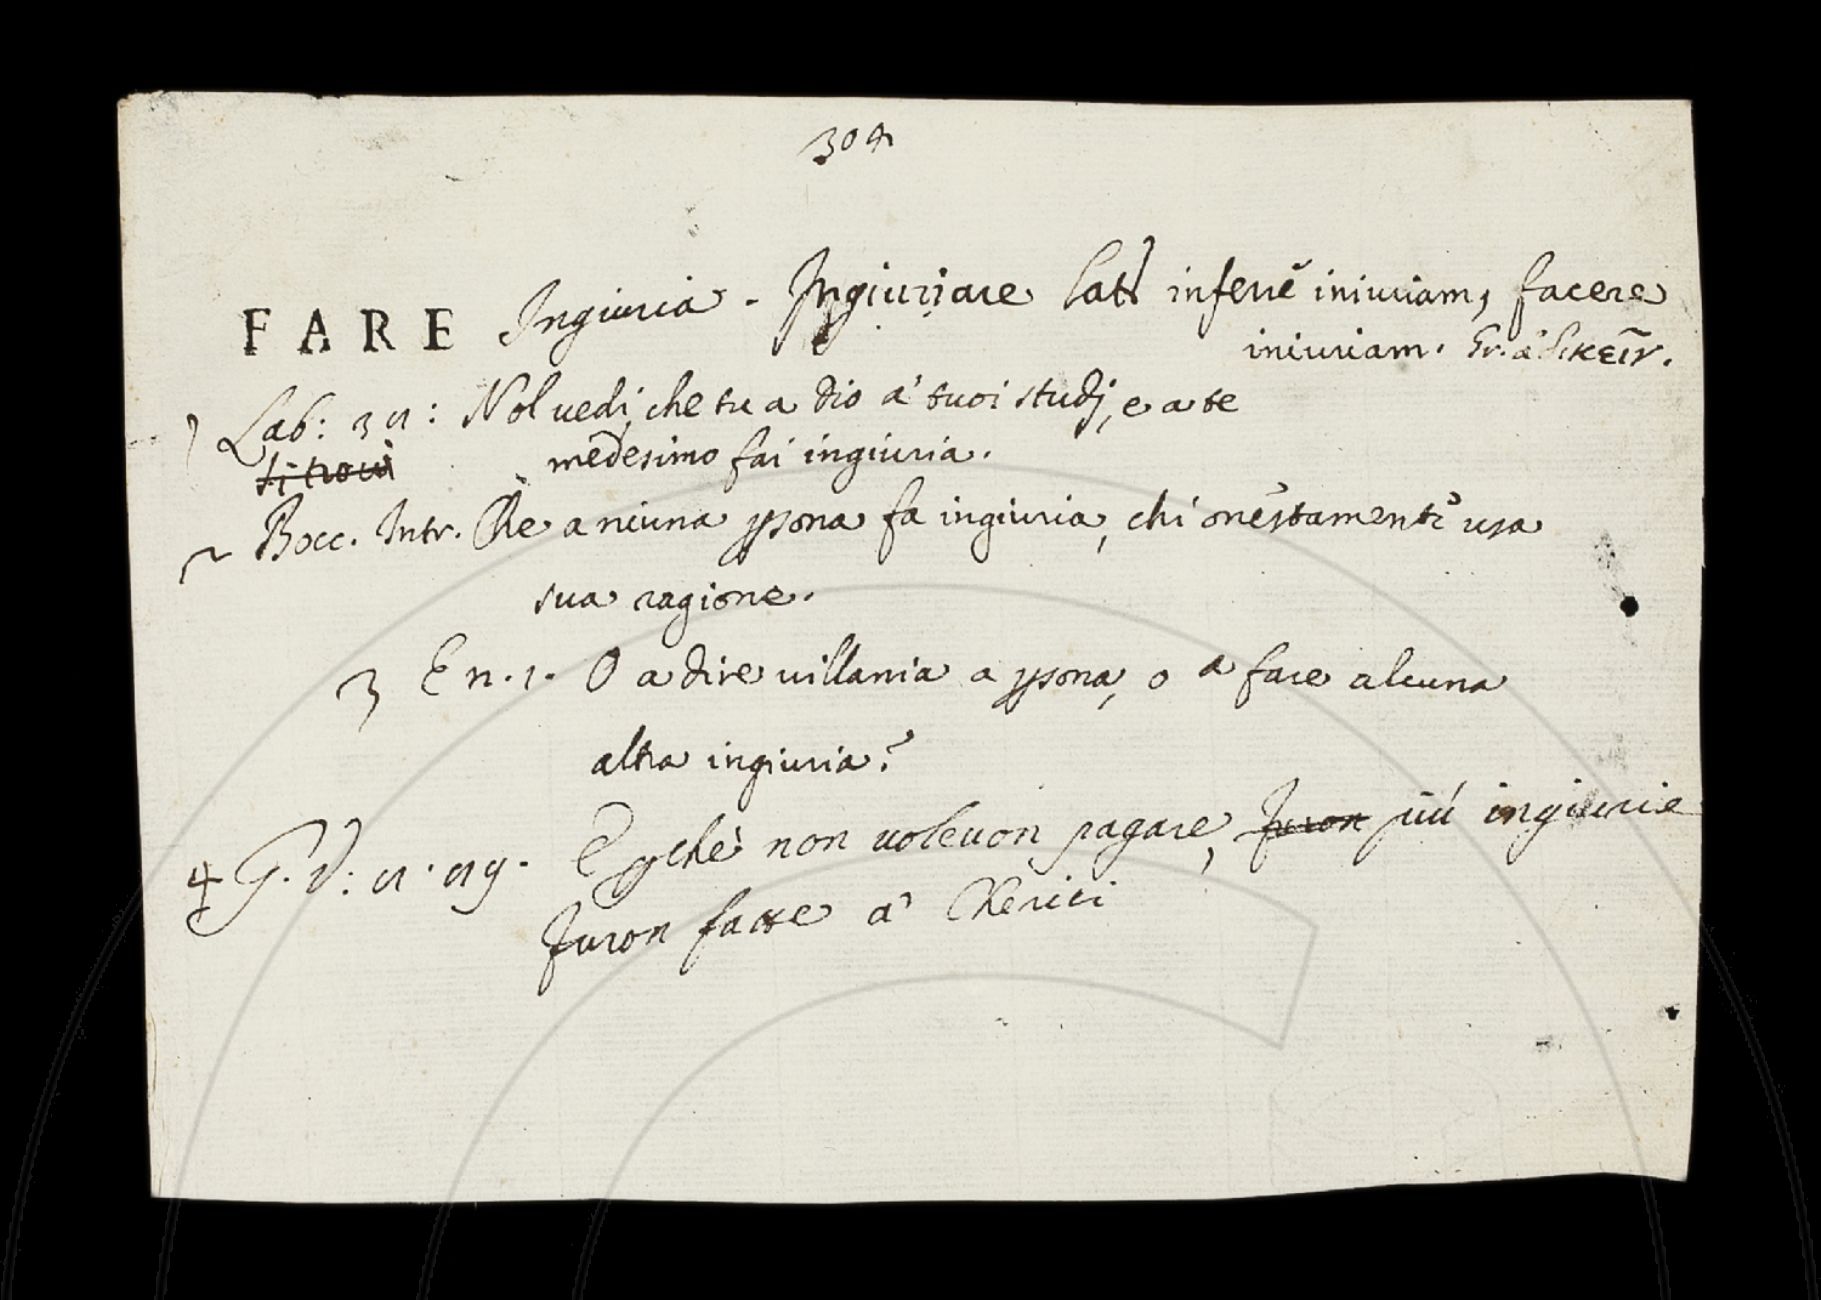 304
FARE Ingiuria. Ingiuriare Lat. inferre iniuriam, facere
iniuriam. Gr. ἀδικεῖν.
1 Lab: 32: Nol vedi, che tu a Dio a' tuoi studj, e a te
si trovi medesimo fai ingiuria.
2 Bocc. Intr. Che a niuna psona fa ingiuria, chi onestamente usa
sua ragione.
3 E n. 1. O a dire villania a psona, o a fare alcuna
altra ingiuria?
4 G. V: E pchè non volevon pagare, furon più ingiurie
furon fatte a' Cherici